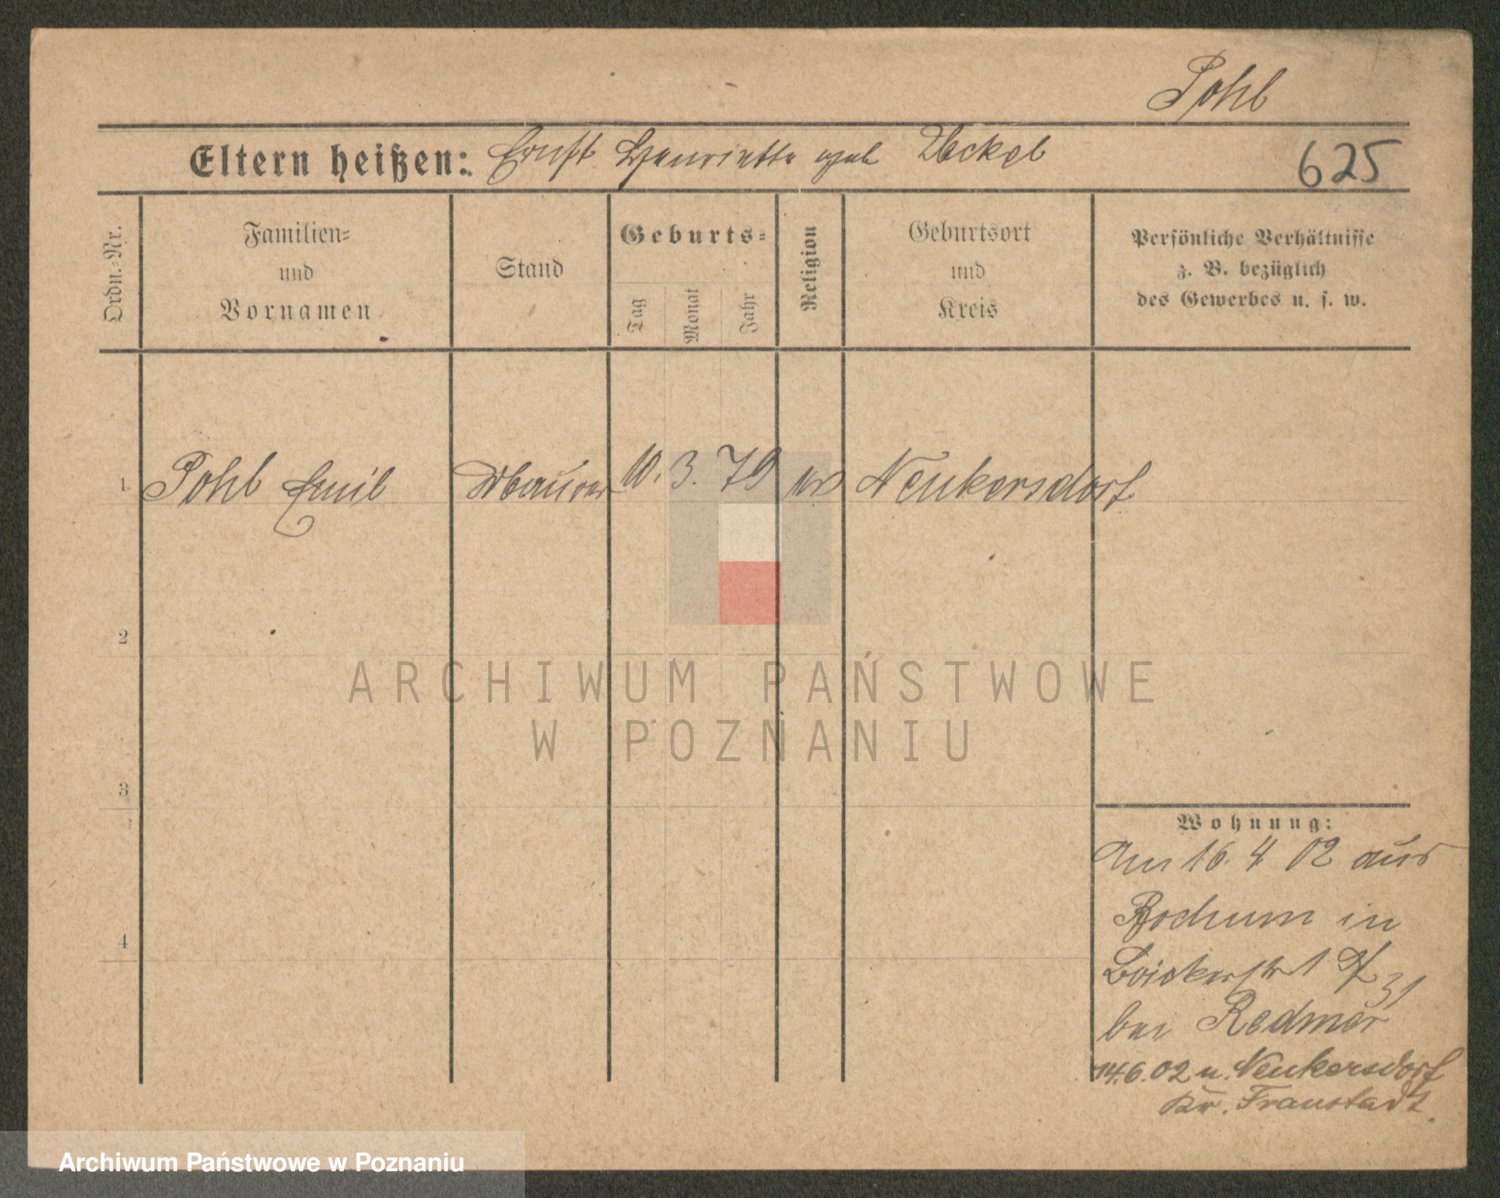 Pohl
Eltern heißen: Ernst Henriette geb.
625
Ordn.-Nr.
Familien-
und
Vornamen
Stand
Geburts-
Tag
Monat
Jahr
Religion
Geburtsort
und
Kreis
Persönliche Verhältnisse
z. B. bezüglich
des Gewerbes u. s. w.
1 Pohl Emil Maurer 10. 3. 79 ev Neukersdorf
2
3
4
Wohnung:
Am 16 4 02 aus
Bochum in
bei Redmer
14.6.02 n. Neukersdorf
Kr. Fraustadt.
ARCHIWUM PAŃSTWOWE
W POZNANIU
Archiwum Państwowe w Poznaniu